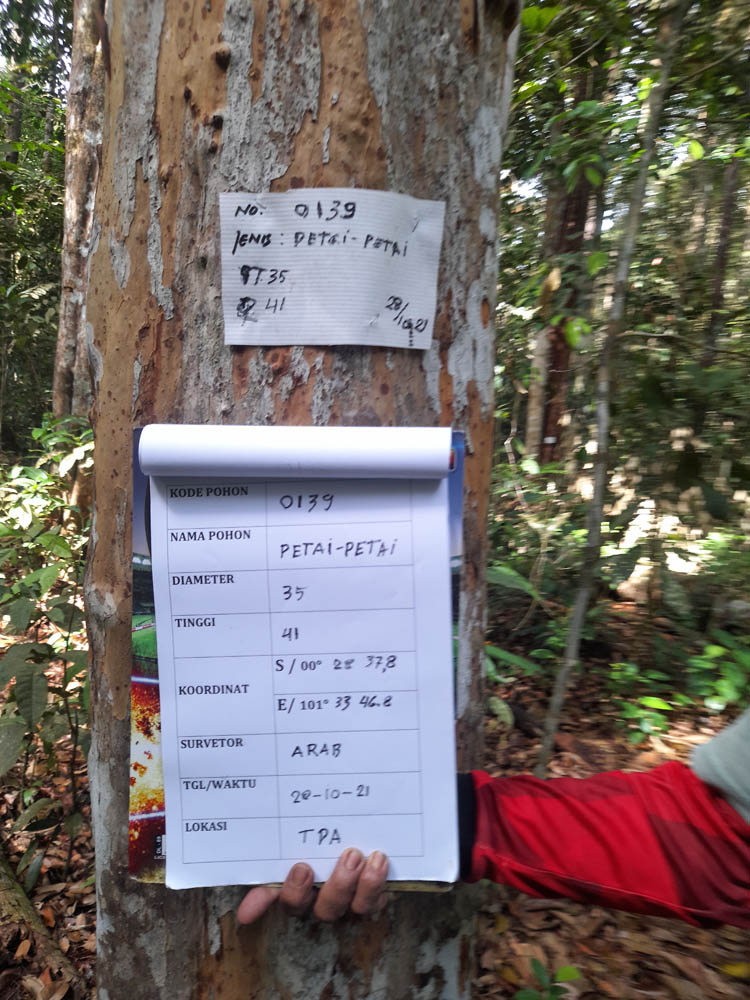 No. 0139
JENIS : PETAI-PETAI
T. 35
41
28/10 21
KODE POHON 0139
NAMA POHON PETAI-PETAI
DIAMETER 35
TINGGI 41
KOORDINAT
S / 00° 28 37,8
E/ 101° 33 46.8
SURVETOR ARAB
TGL/WAKTU 28-10-21
LOKASI TPA